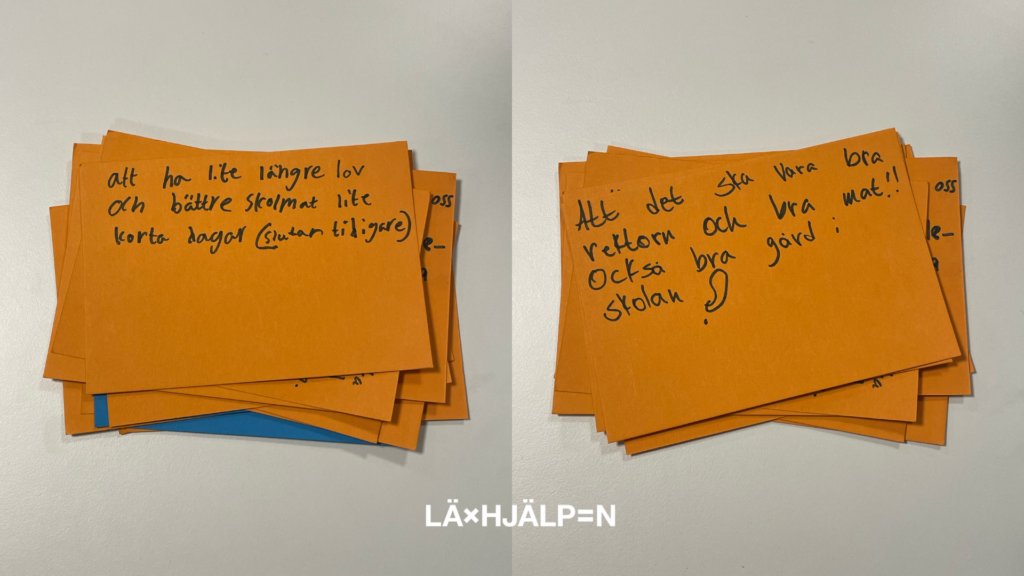 att ha lite längre lov
och bättre skolmat lite
korta dagar (slutar tidigare)
oss
Att det ska vara bra
rektorn och bra mat!!
också bra gård i
skolan
oss
LÄ×HJÄLP=N